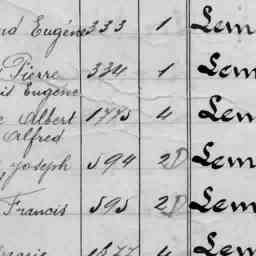 Eugéne 333 1 Lem
Pierre 334 1 Lem
Eugéne
Albert 1775 4 Lem
Alfred
Joseph 594 2D Lem
Francis 595 2D Lem
4 Lem